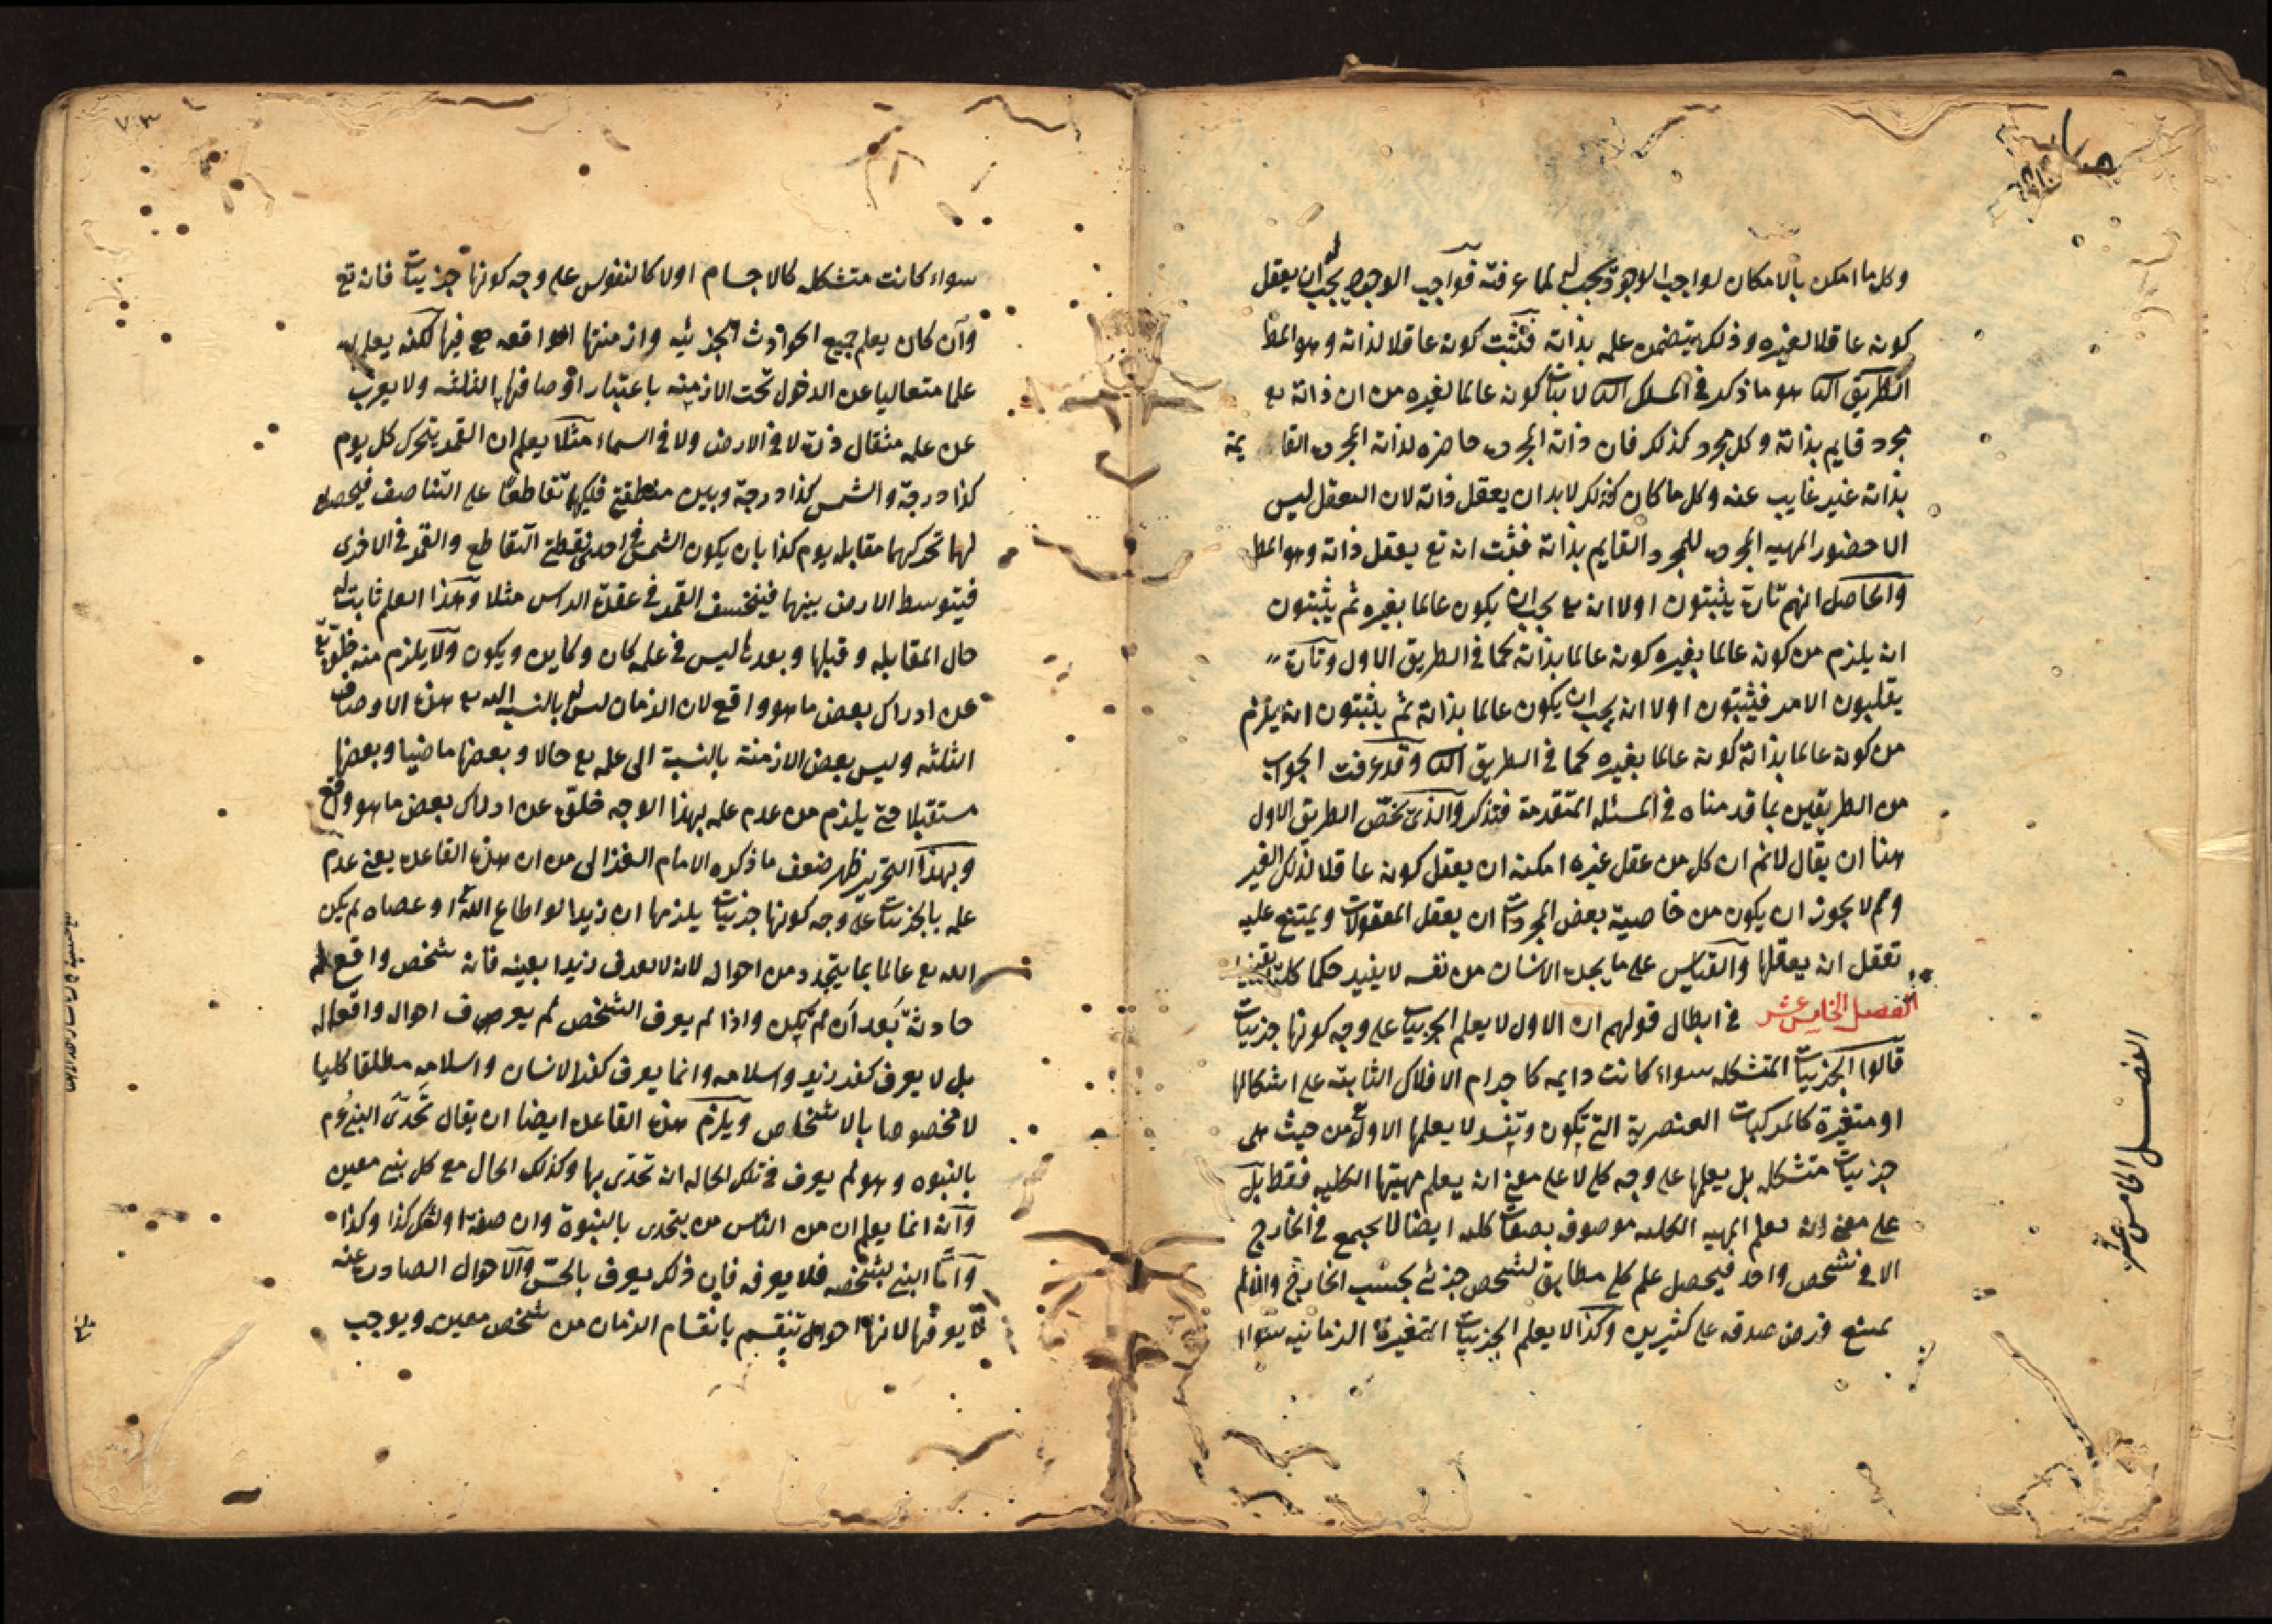 وكل ما امكن بالامكان لواجب الوجود يجب له لما عرفته فواجب الوجود يجب ان يعقل
كونه عاقلا لغيره وذلك يتضمن علمه بذاته فثبت كونه عاقلا لذاته وهو المط
الطريق الثا هو ما ذكر في المسلك الثا لاثبات كونه عالما لغيره من ان ذاته تع
مجرد قايم بذاته وكل مجرد كذلك فان ذاته المجردة حاضرة لذاته المجردة القا يمة
بذاته غير غايب عنه وكل ما كان كذلك لابد ان يعقل ذاته لان التعقل ليس
الا حضور المهيه المجردة للمجرد القايم بذاته فثبت انه تع يعقل ذاته وهو المط
والحاصل انهم تارة يثبتون اولا انه تع يجب ان يكون عالما بغيره ثم يثبتون
انه يلزم من كونه عالما بغيره كونه عالما بذاته كما في الطريق الاول وتارة
يقلبون الامر فيثبتون اولا انه يجب ان يكون عالما بذاته ثم يثبتون انه يلزم
من كونه عالما بذاته كونه عالما بغيره كما في الطريق الثا وقد عرفت الجواب
من الطريقين بما قدمناه في المسئله المتقدمة فتذكر والذي يخص الطريق الاول
هنا ان يقال لانم ان كل من عقل غيره امكنه ان يعقل كونه عاقلا لذلك الغير
ولم لا يجوز ان يكون من خاصية بعض المجردات ان يعقل المعقولات ويمتنع عليه
تعقل انه يعقلها والقياس على ما يجده الانسان من نفسه لا يفيد حكما كليا يقينيا
الفصل الخامس عشر في ابطال قولهم ان الاول لا يعلم الجزييات على وجه كونها جزييات
قالوا الجزييات المتشكله سواء كانت دايمه كاجرام الافلاك الثابته على اشكالها
او متغيرة كالمركبات العنصرية التي تتكون وتفسد لا يعلمها الاول تع من حيث هى
جزييات متشكله بل يعلمها على وجه كلي لا على معنى انه يعلم مهيتها الكليه فقط بل
على معنى انه يعلم المهيه الكليه موصوفه بصفات كليه ايضا لا تجمع في الخارج
الا في شخص واحد فيحصل علم كلي مطابق لشخص جزئي بحسب الخارج وان لم
يمتنع فرض صدقه على كثيرين وكذا لا يعلم الجزييات المتغيرة الزمانيه سواء
الفصل الخامس عشر
٧٣
سواء كانت متشكله كالاجسام اولا كالنفوس على وجه كونها جزييات فانه تع
وان كان يعلم جميع الحوادث الجزئيه وازمنتها الواقعه هي فيها لكنه يعلمه
علما متعاليا عن الدخول تحت الازمنه باعتبار اوصافها الثلثه ولا يعزب
عن علمه مثقال ذرة لا في الارض ولا في السماء مثلا يعلم ان القمر يتحرك كل يوم
كذا درجة والشمس كذا درجة وبين منطقتي فلكيهما تقاطعا على التناصف فيحصل
لهما بحركتهما مقابله يوم كذا بان يكون الشمس في احدى نقطتي التقاطع والقمر في الاخرى
فيتوسط الارض بينهما فينخسف القمر في عقدة الراس مثلا وهذا العلم ثابت له
حال المقابله وقبلها وبعدها ليس في علمه كان وكاين ويكون ولا يلزم منه خلوه تع
عن ادراك بعض ما هو واقع لان الزمان ليس له بالنسبه اليه تع هذه الاوصاف
الثلثه وليس بعض الازمنة بالنسبة الى علمه تع حالا وبعضها ماضيا وبعضها
مستقبلا حتى يلزم من عدم علمه بهذا الوجه خلوه عن ادراك بعض ما هو واقع
وبهذا التحرير ظهر ضعف ما ذكره الامام الغزالى من ان هذه القاعدة يعني عدم
علمه بالجزييات على وجه كونها جزييات يلزمها ان زيدا لو اطاع الله تع او عصاه لم يكن
الله تع عالما بما يتجدد من احواله لانه لا يعرف زيدا بعينه فانه شخص وافعاله
حادثة بعد ان لم يكن واذا لم يعرف الشخص لم يعرف احواله وافعاله
بل لا يعرف كفر زيد واسلامه وانما يعرف كفر الانسان واسلامه مطلقا كليا
لا مخصوصا بالاشخاص ويلزم هذه القاعدة ايضا ان يقال تحدى النبي عم
بالنبوه وهو لم يعرف في تلك الحاله انه تحدى بها وكذلك الحال مع كل نبي معين
وانه انما يعلم ان من الناس من يتحدى بالنبوة وان صفة اولئك كذا وكذا
واما النبي بشخصه فلا يعرفه فان ذلك يعرف بالحس والاحوال الصادرة عنه
لا يعرفها لانها احوال تنقسم بانقسام الزمان من شخص معين ويوجب